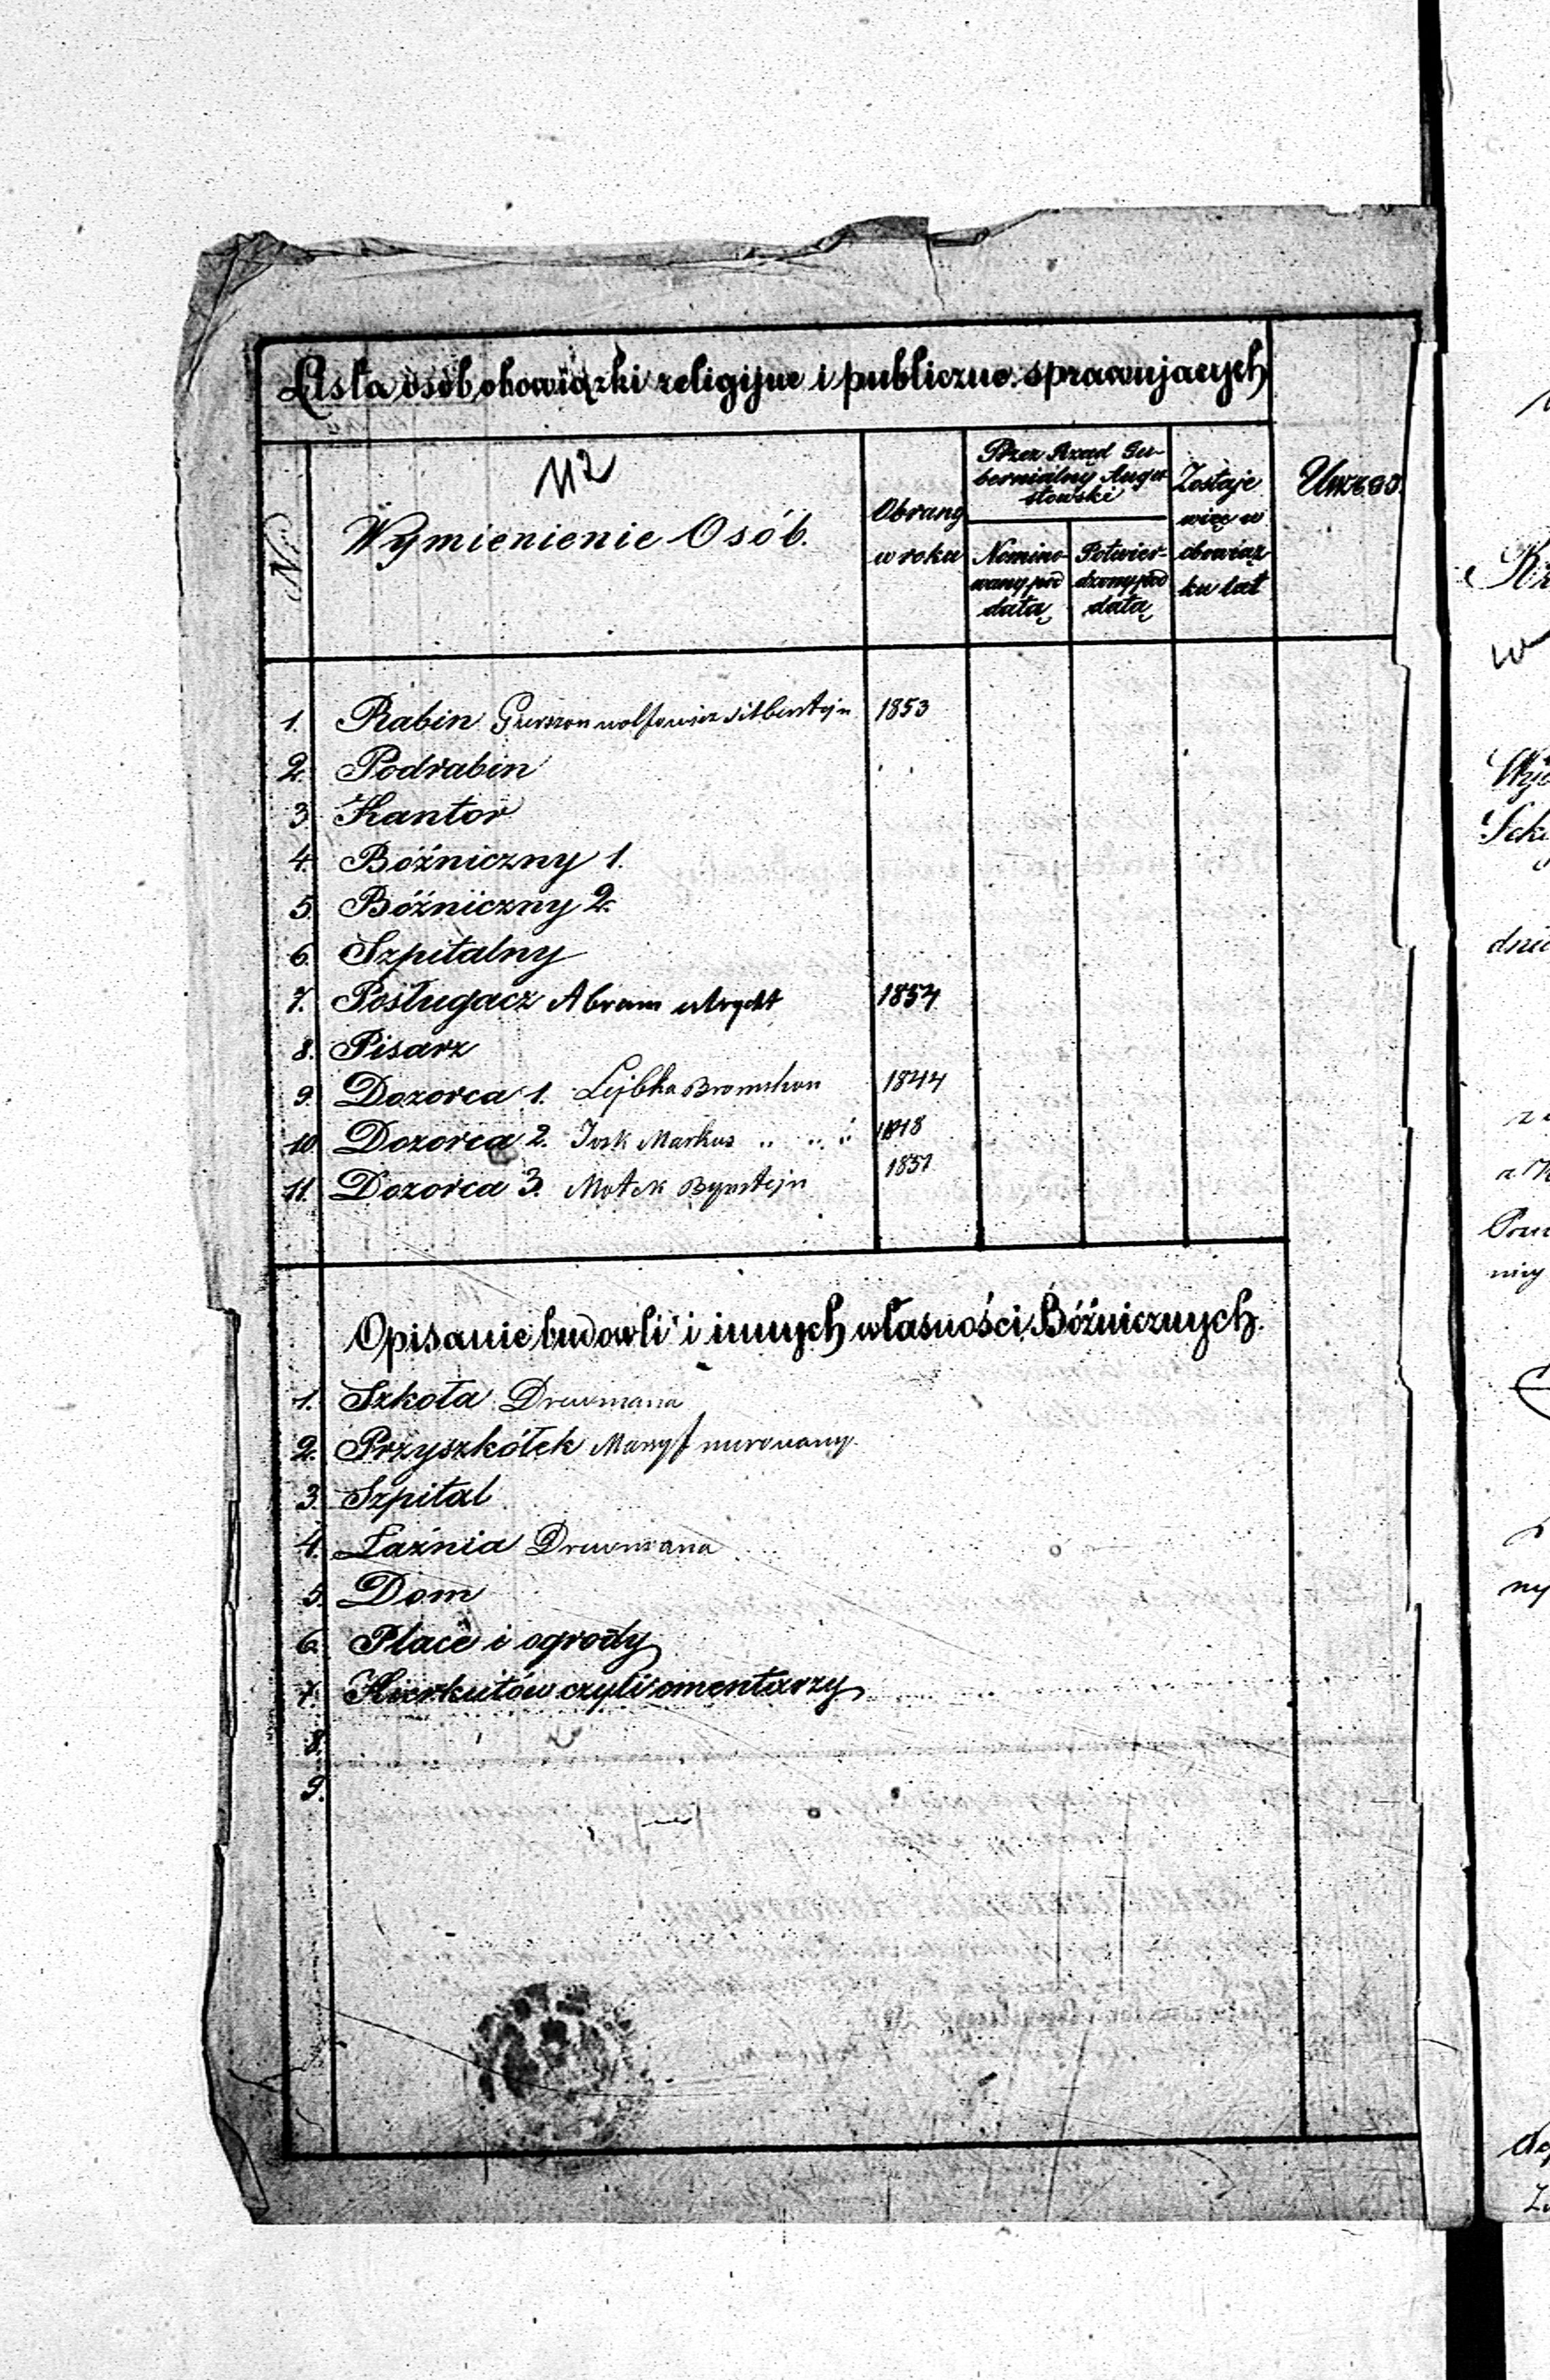 Lista osób obowiązki religijne i publiczne sprawujących
112
Nr
Wymienienie Osób.
Obrany w roku
Przez Rząd Gubernialny Augustowski
Nominowany pod datą
Potwierdzony pod datą
Zostaje więc w obowiązku lat
Uwago.
1. Rabin Gierszon Wolfowicz Silbersztejn 1853
2. Podrabin
3. Kantor
4. Bóźniczny 1.
5. Bóźniczny 2.
6. Szpitalny
7. Posługacz Abram 1854
8. Pisarz
9. Dozorca 1. Lejbka 1844
10. Dozorca 2. Josk Markus
11. Dozorca 3. Motek 1851
Opisanie budowli i innych własności Bóźnicznych.
1. Szkoła Drewniana
2. Przyszkółek Massyf murowany.
3. Szpital
4. Łaźnia Drewniana
5. Dom
6. Place i ogrody
7. Kierkutów czyli smentarzy
8.
9.